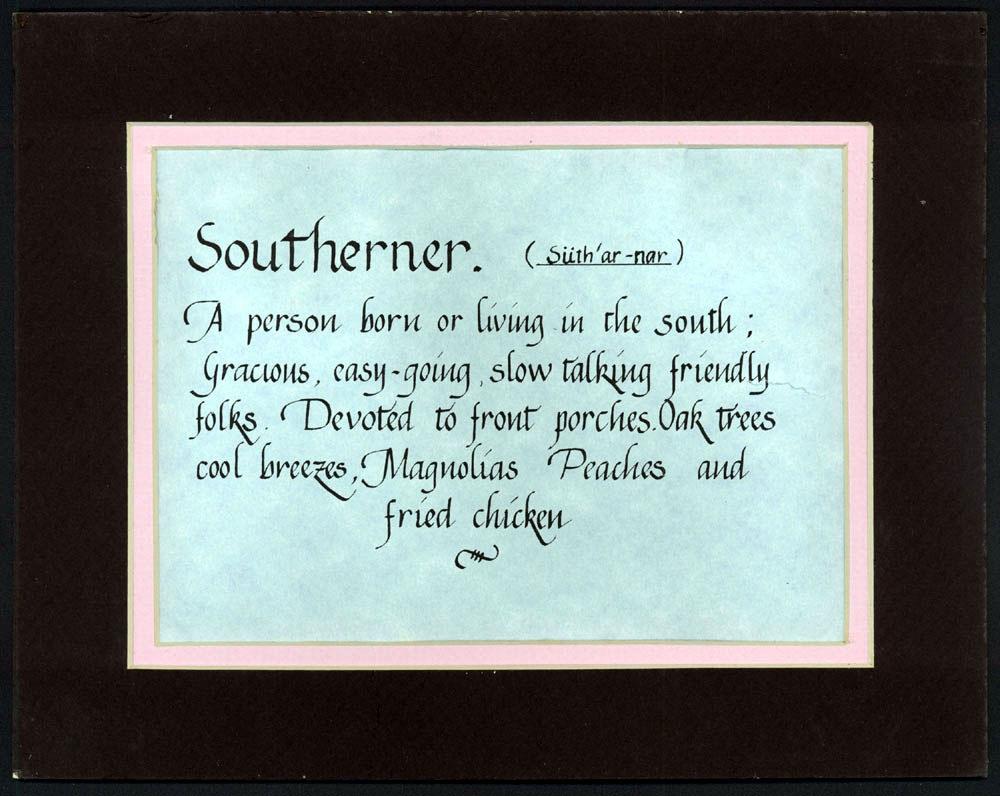 Southerner. (Süth'ar-nar)
A person born or living in the south;
Gracious, easy-going, slow talking friendly
folks. Devoted to front porches. Oak trees
cool breezes, Magnolias Peaches and
fried chicken